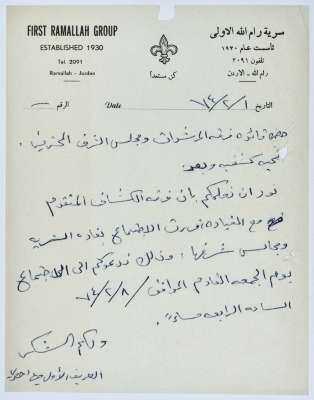 FIRST RAMALLAH GROUP
ESTABLISHED 1930
Tel. 2091
Ramallah - Jordan
سرية رام الله الاولى
تأسست عام ١٩٣٠
تلفون ٢٠٩١
رام الله - الاردن
كن مستعداً
التاريخ ٧٤/٢/١ Date الرقم
حضرة قائدة فرقة المرشدات ومجلس الشرف المحترمين
تحية كشفية وبعد
نود ان نعلمكم بان فرقة الكشاف المتقدم
مع القيادة قررت الاجتماع بقادة السرية
ومجالس شرفها، وذلك ندعوكم الى الاجتماع
يوم الجمعة القادم الموافق ٧٤/٢/٨
الساعة الرابعة مساءً.
ولكم الشكر
العريف الأول